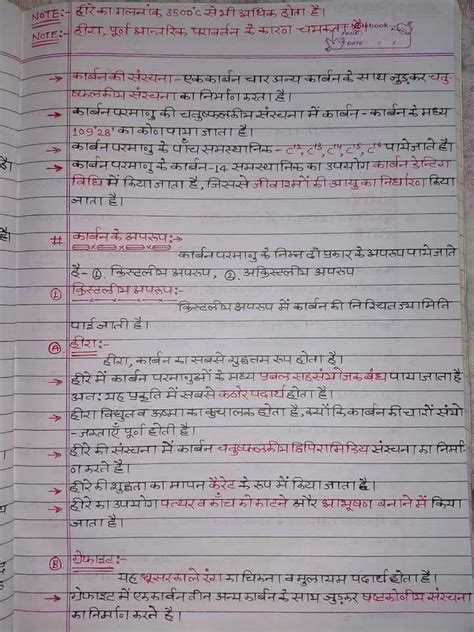 NOTE:- हीरे का गलनांक 3500°C से भी अधिक होता है।
NOTE:- हीरा, पूर्ण आन्तरिक परावर्तन के कारण चमकता है।
DATE: / /
→ कार्बन की संरचना - एक कार्बन चार अन्य कार्बन के साथ जुड़कर चतु-
ष्फलकीय संरचना का निर्माण करता है।
→ कार्बन परमाणु की चतुष्फलकीय संरचना में कार्बन - कार्बन के मध्य
109°28' का कोण पाया जाता है।
→ कार्बन परमाणु के पाँच समस्थानिक - C¹², C¹³, C¹⁴, C¹⁵, C¹⁶ पाये जाते है।
→ कार्बन परमाणु के कार्बन-14 समस्थानिक का उपयोग कार्बन डेन्टिंग
विधि में किया जाता है, जिससे जीवाश्मों की आयु का निर्धारण किया
जाता है।
# कार्बन के अपरूप:→
कार्बन परमाणु के निम्न दो प्रकार के अपरूप पाये जाते
है- ①. क्रिस्टलीय अपरूप, ②. अक्रिस्टलीय अपरूप
① क्रिस्टलीय अपरूप:-
क्रिस्टलीय अपरूप में कार्बन की निश्चित ज्यामिति
पाई जाती है।
Ⓐ हीरा:-
हीरा, कार्बन का सबसे शुद्धतम रूप होता है।
→ हीरे में कार्बन परमाणुओं के मध्य प्रबल सहसंयोजक बंध पाया जाता है
अत: यह प्रकृति में सबसे कठोर पदार्थ होता है।
→ हीरा विद्युत व ऊष्मा का कुचालक होता है, क्योंकि कार्बन की चारों संयो
-जकताएँ पूर्ण होती है।
→ हीरे की संरचना में कार्बन चतुष्फलकीय डिपिरामिडिय संरचना का निर्मा
ण करते है।
→ हीरे की शुद्धता का मापन कैरेट के रूप में किया जाता है।
→ हीरे का उपयोग पत्थर व काँच को काटने और आभूषण बनाने में किया
जाता है।
Ⓑ. ग्रेफाइट:-
यह धूसर काले रंग का चिकना व मुलायम पदार्थ होता है।
→ ग्रेफाइट में एक कार्बन तीन अन्य कार्बन के साथ जुड़कर षष्टकोणीय संरचना
का निर्माण करते है।